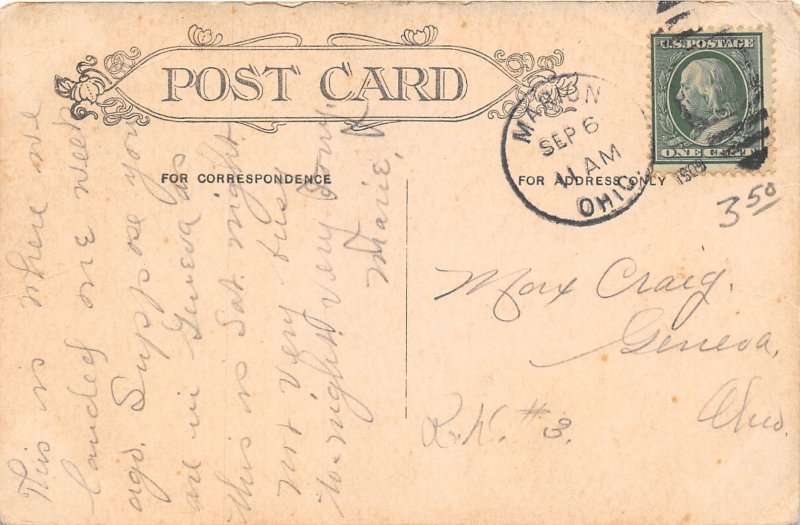 POST CARD
FOR CORRESPONDENCE
FOR ADDRESS ONLY
U.S. POSTAGE
ONE CENT
MARION
SEP 6
11 AM
OHIO.
1909
3 50
Max Craig.
Geneva,
Ohio.
#3.
This is where we
landed one week
ago. Suppose you
are in Geneva as
this is Sat. night.
Not very
to-night. Very
Marie,